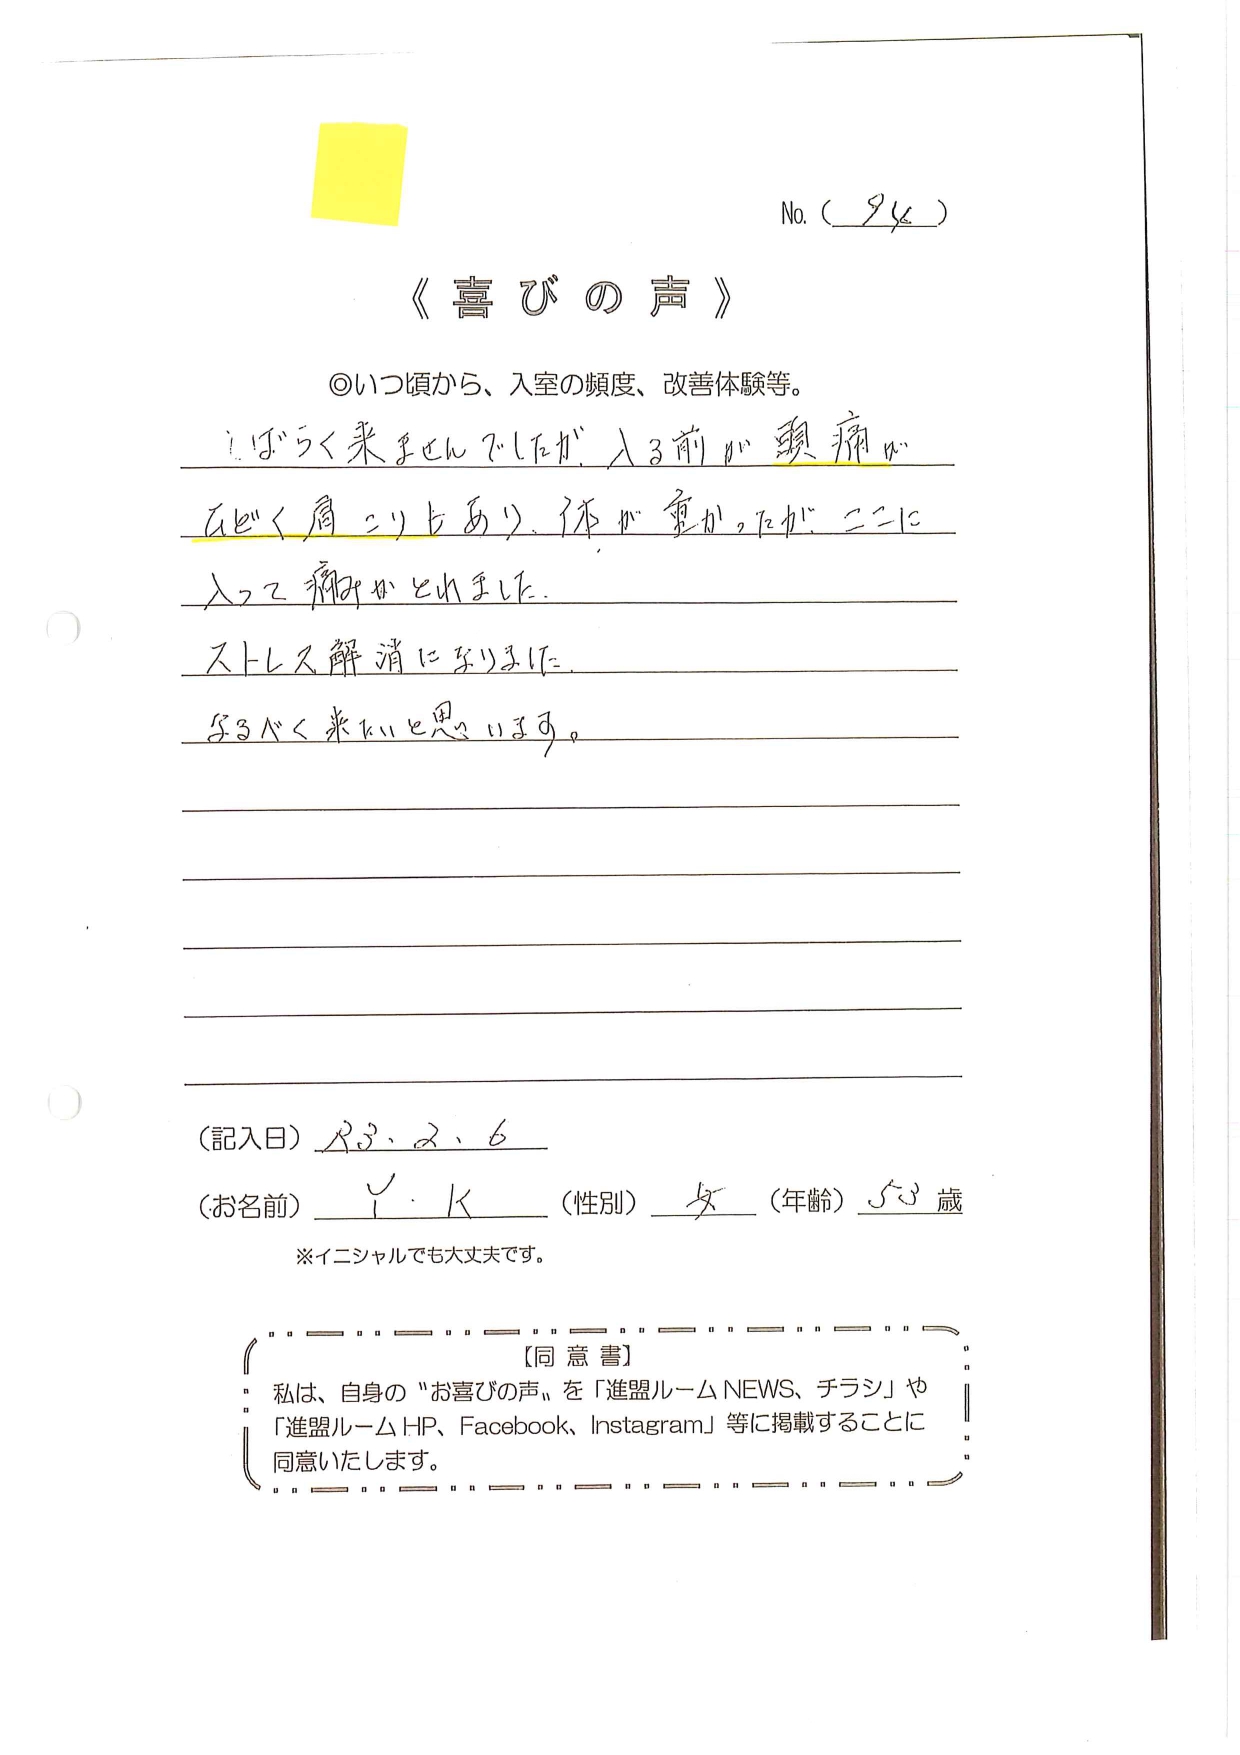 No.（ 94 ）
《 喜 び の 声 》
◎いつ頃から、入室の頻度、改善体験等。
しばらく来ませんでしたが、入る前が頭痛が
ひどく肩こりもあり、体が重かったが、ここに
入って痛みがとれました。
ストレス解消になりました。
なるべく来たいと思います。
（記入日） R3、2、6
（お名前） Y・K （性別） 女 （年齢） 53 歳
※イニシャルでも大丈夫です。
【同 意 書】
私は、自身の〝お喜びの声〟を「進盟ルーム NEWS、チラシ」や
「進盟ルーム HP、Facebook、Instagram」等に掲載することに
同意いたします。